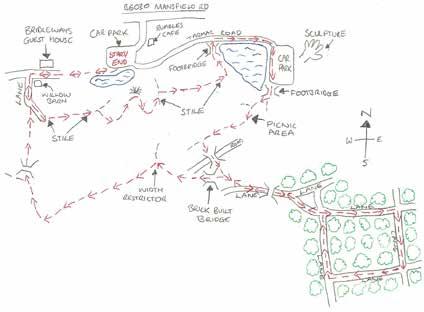 B6030 MANSFIELD RD
BRIDLEWAYS
GUEST HOUSE
CAR PARK
RUMBLES
CAFE
TARMAC ROAD
SCULPTURE
START/
END
FOOTBRIDGE
CAR
PARK
LANE
WILLOW
BARN
STILE
STILE
FOOTBRIDGE
PICNIC
AREA
N
W
E
S
WIDTH
RESTRICTOR
BRICK BUILT
BRIDGE
LANE
LANE
LANE
LANE